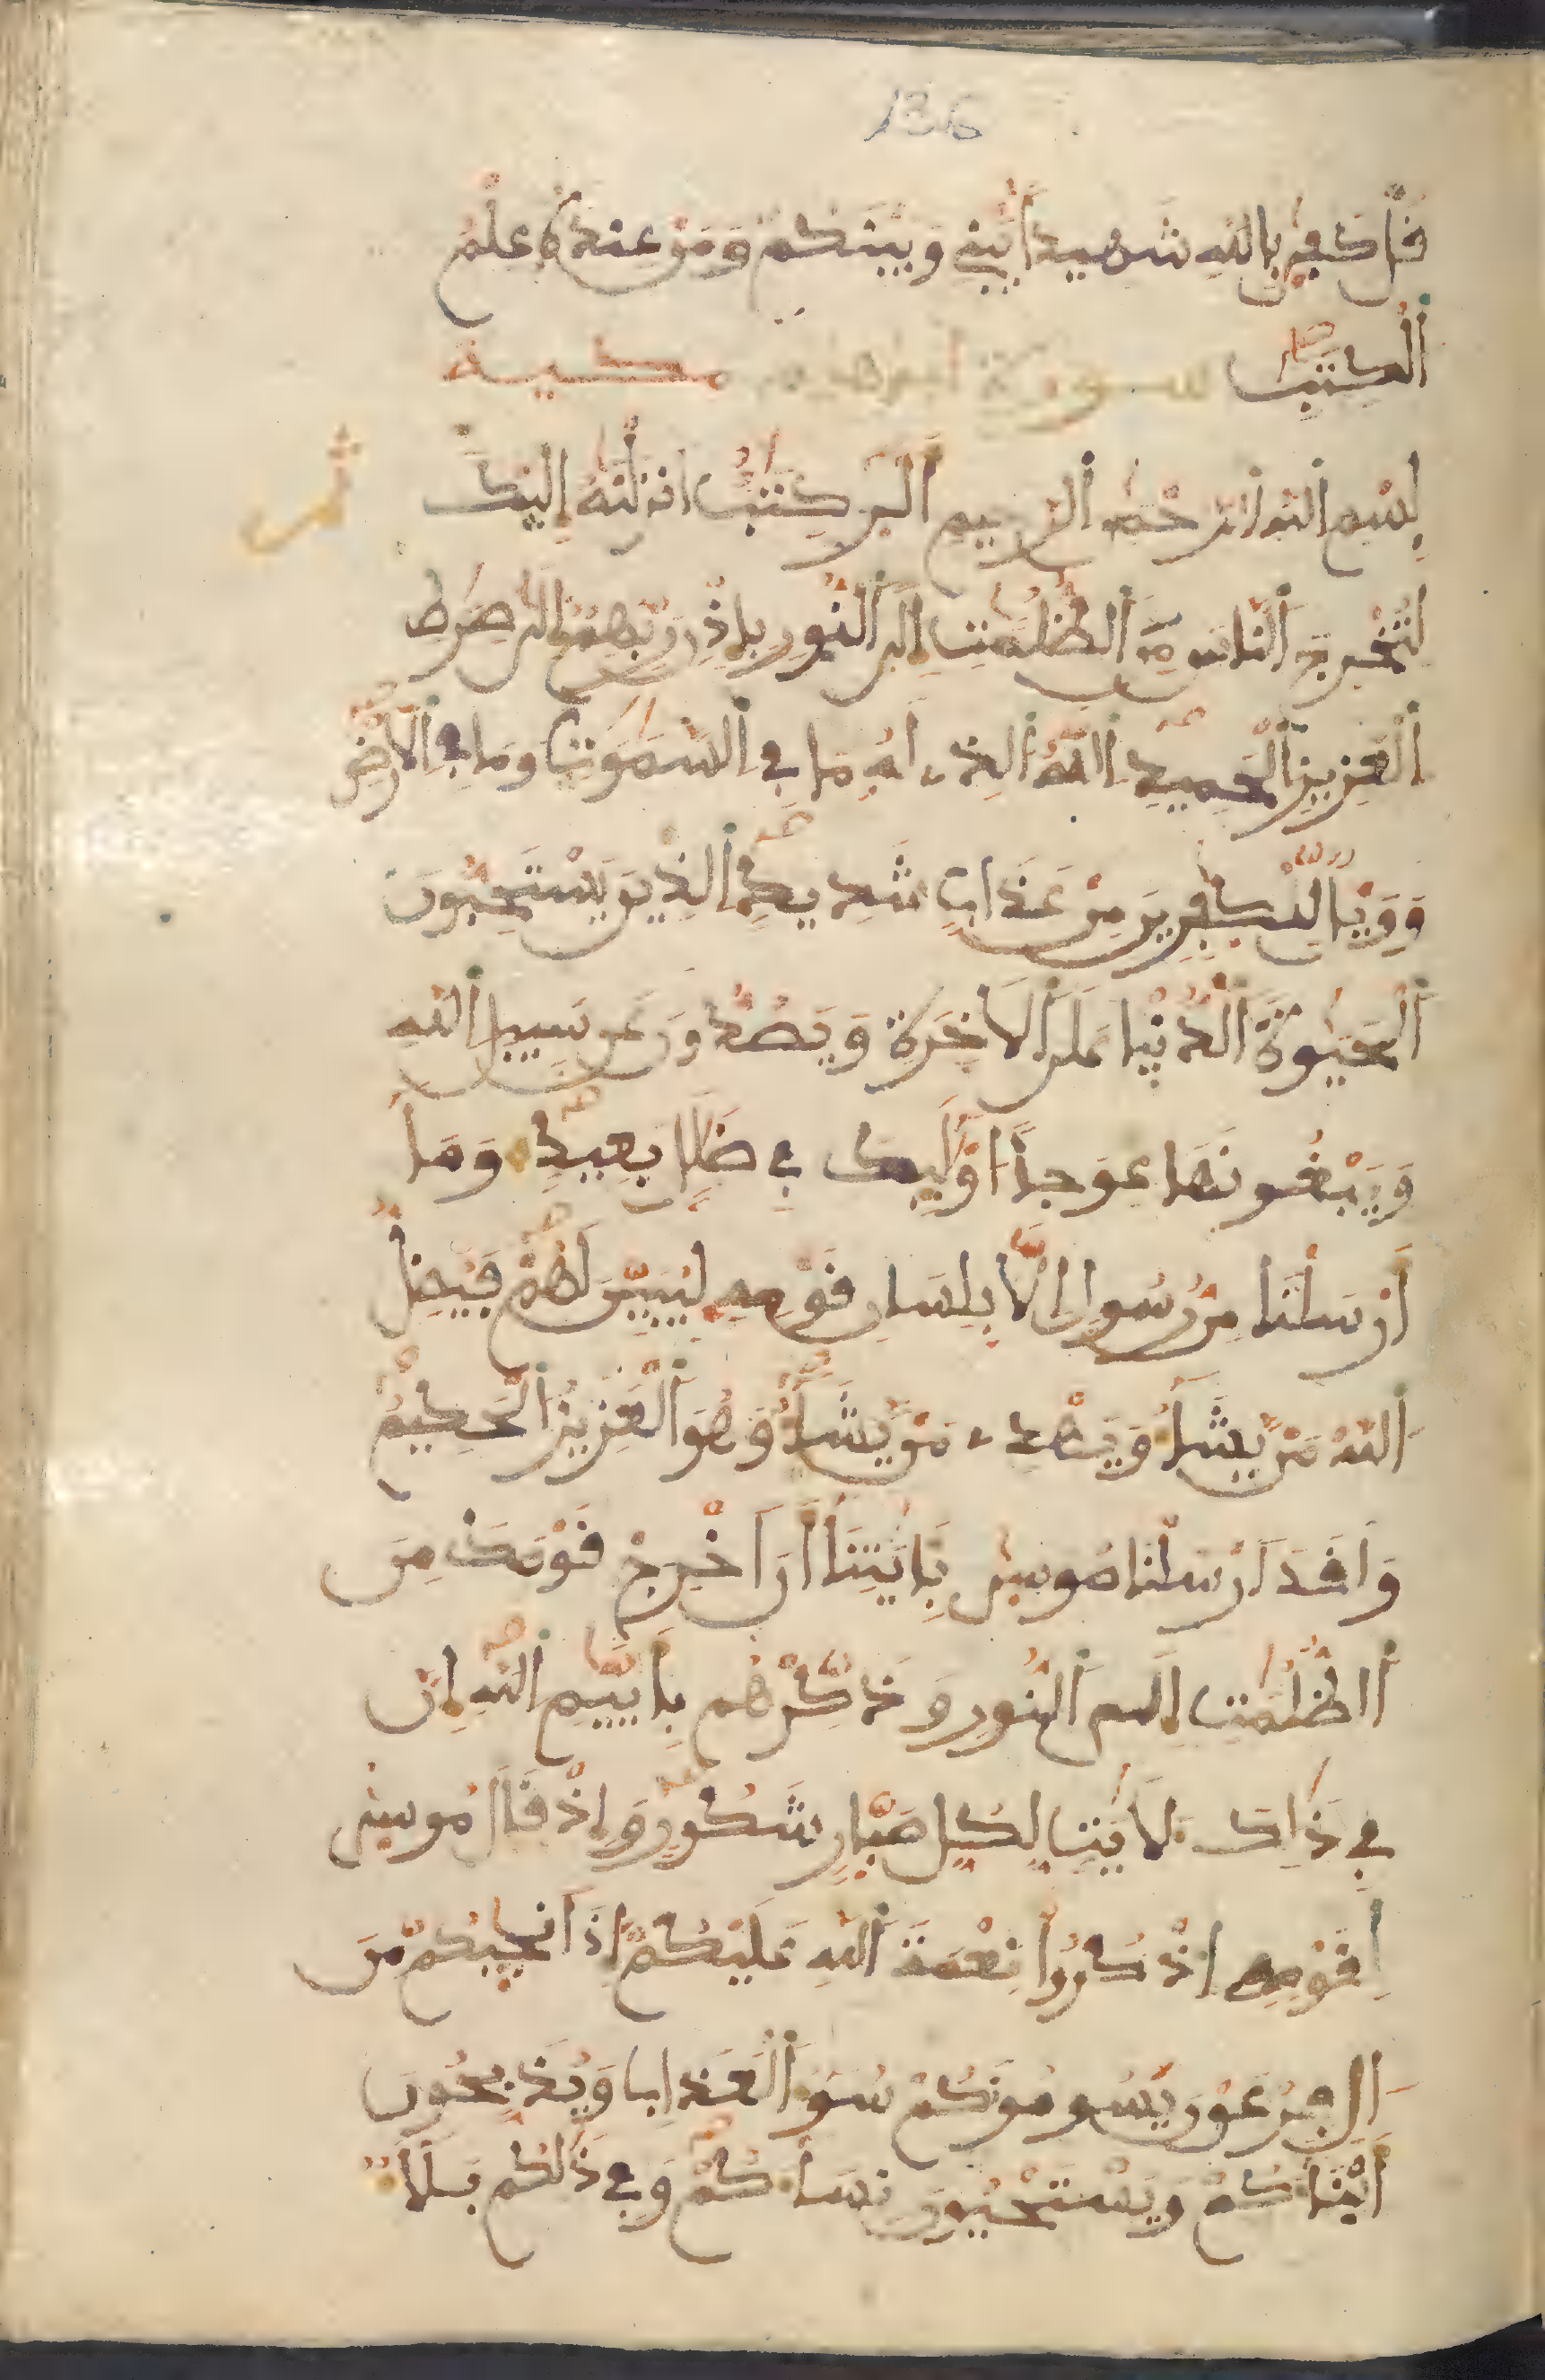 136
قل كفى بالله شهيدا بيني وبينكم ومن عنده علم
الكتب سورة ابرهيم مكية
بسم الله الرحمن الرحيم الر كتب انزلنه اليك
ثمن
لتخرج الناس من الظلمت الى النور باذن ربهم الى صرط
العزيز الحميد الله الذى له ما في السموت وما في الارض
وويل للكفرين من عذاب شديد الذين يستحبون
الحيوة الدنيا على الاخرة ويصدون عن سبيل الله
ويبغونها عوجا اوليك في ضلل بعيد وما
ارسلنا من رسول الا بلسان قومه ليبين لهم فيضل
الله من يشا ويهدى من يشا وهو العزيز الحكيم
ولقد ارسلنا موسى بايتنا ان اخرج قومك من
الظلمت الى النور وذكرهم باييم الله ان
في ذلك لايت لكل صبار شكور واذ قال موسى
لقومه اذكروا نعمة الله عليكم اذ انجيكم من
ال فرعون يسومونكم سو العذاب ويذبحون
ابناكم ويستحيون نساكم وفي ذلكم بلا